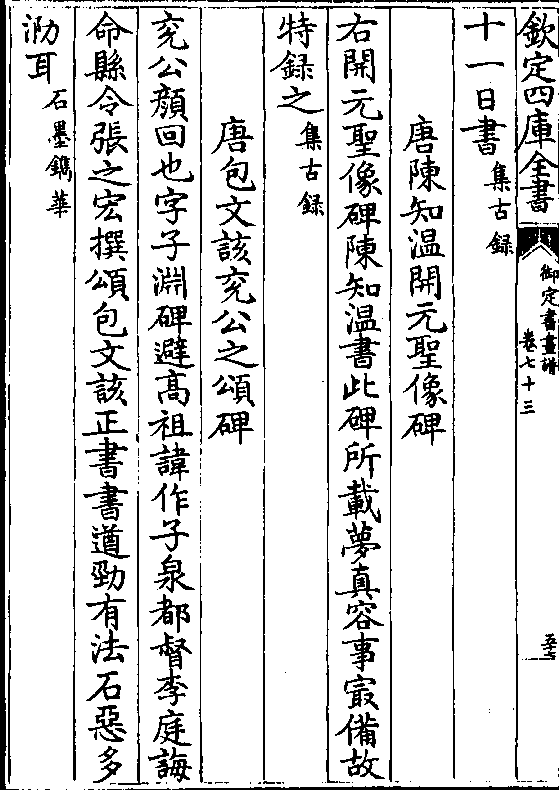 欽定四庫全書
御定書畫譜
卷七十三
十一日書集古録
唐陳知温開元聖像碑
右開元聖像碑陳知温書此碑所載夢真容事㝡備故
特録之集古録
唐包文該兖公之頌碑
兖公顔回也字子淵碑避高祖諱作子泉都督李庭誨
命縣令張之宏撰頌包文該正書書遒勁有法石惡多
泐耳石墨鐫華